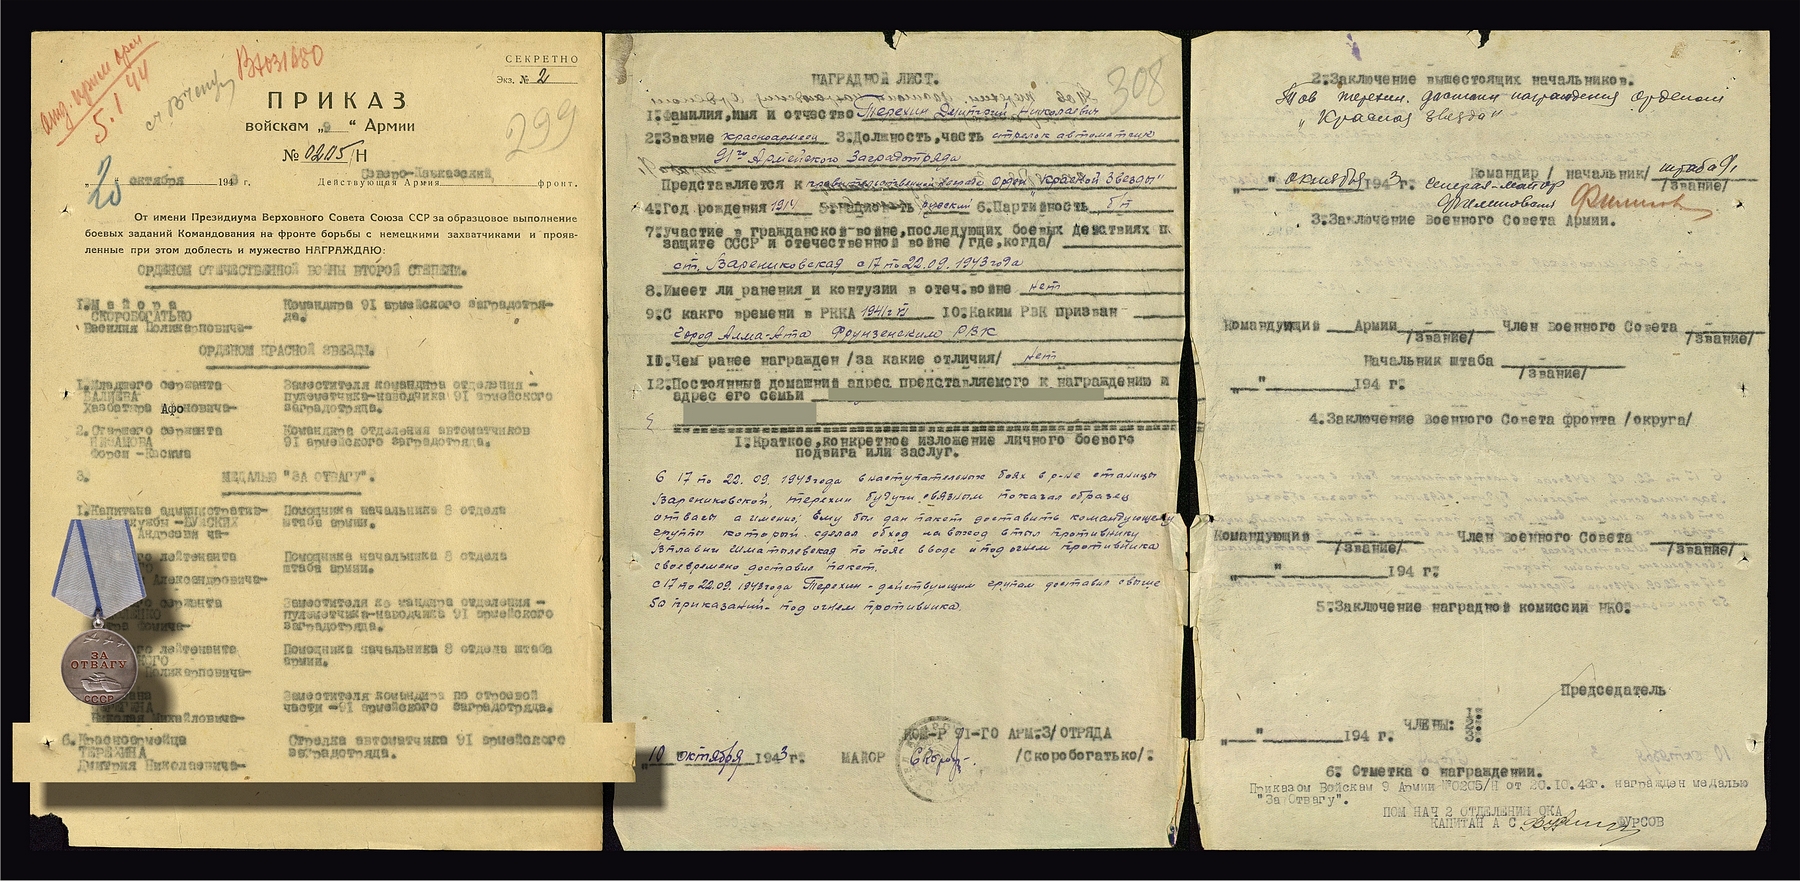 В7031680
5.I 44
СЕКРЕТНО
Экз. № 2
299
ПРИКАЗ
войскам „9“ Армии
№ 0205/Н
„20“ октября 1943 г. Действующая Армия Северо-Кавказский фронт.
От имени Президиума Верховного Совета Союза ССР за образцовое выполнение
боевых заданий Командования на фронте борьбы с немецкими захватчиками и прояв-
ленные при этом доблесть и мужество НАГРАЖДАЮ:
ОРДЕНОМ ОТЕЧЕСТВЕННОЙ ВОЙНЫ ВТОРОЙ СТЕПЕНИ.
I. Майора Командира 91 армейского заградотря-
СКОРОБОГАТЬКО да.
Василия Поликарповича-
ОРДЕНОМ КРАСНОЙ ЗВЕЗДЫ.
1. Младшего сержанта Заместителя командира отделения -
пулеметчика-наводчика 91 армейского
Афоновича- заградотряда.
2. Старшего сержанта Командира отделения автоматчиков
НИЗАМОВА 91 армейского заградотряда.
3. МЕДАЛЬЮ "ЗА ОТВАГУ".
I. Капитана административ- Помощника начальника 8 отдела
службы - штаба армии.
Андреевича-
лейтенанта Помощника начальника 8 отдела
штаба армии.
Александровича-
сержанта Заместителя командира отделения -
пулеметчика-наводчика 91 армейского
Фомича- заградотряда.
лейтенанта Помощника начальника 8 отдела штаба
армии.
Поликарповича-
Заместителя командира по строевой
части - 91 армейского заградотряда.
Николая Михайловича-
6. Красноармейца Стрелка автоматчика 91 армейского
ТЕРЕХИНА заградотряда.
Дмитрия Николаевича-
ЗА
ОТВАГУ
СССР
308
НАГРАДНОЙ ЛИСТ.
1. Фамилия, имя и отчество Терехин Дмитрий Николаевич
2. Звание красноармеец 3. Должность, часть стрелок автоматчик
91го Армейского Заградотряда
Представляется к правительственной награде Орден "Красной Звезды"
4. Год рождения 1914 5. Национ-ть русский 6. Партийность б/п
7. Участие в гражданской войне, последующих боевых действиях по
защите СССР и отечественной войне /где, когда/
ст. Варениковская с 17 по 22.09.1943 года
8. Имеет ли ранения и контузии в отеч. войне нет
9. С какго времени в РККА 1941г 10. Каким РВК призван
город Алма-Ата Фрунзенским РВК
10. Чем ранее награжден /за какие отличия/ нет
12. Постоянный домашний адрес представляемого к награждению и
адрес его семьи
I. Краткое, конкретное изложение личного боевого
подвига или заслуг.
С 17 по 22.09.1943 года в наступательных боях в р-не станицы
Варениковской, Терехин будучи связным показал образец
отваги а именно, Ему был дан пакет доставить командующему
группы который сделал обход на выход в тыл противнику
вплавь по пояс в воде и под огнем противника
своевремено доставил пакет.
С 17 по 22.09.1943 года Терехин - действующим групам доставил свыше
50 приказаний - под огнем противника.
КОМ-Р 91-ГО АРМ.З/ОТРЯДА
„10“ октября 1943 г. МАЙОР /Скоробогатько/.
2. Заключение вышестоящих начальников.
Тов Терехин. достоин награждения орденом
"Красная Звезда"
Командир /начальник/ штаба 9А
"" октября 1943 г. генерал-майор /звание/
3. Заключение Военного Совета Армии.
Командующий Армии Член Военного Совета
/звание/ /звание/
Начальник штаба
/звание/
"" 194 г.
4. Заключение Военного Совета фронта /округа/
Командующий Член Военного Совета
/звание/ /звание/
"" 194 г.
5. Заключение наградной комиссии НКО.
Председатель
ЧЛЕНЫ: 1.
2.
3.
"" 194 г.
6. Отметка о награждении.
Приказом Войскам 9 Армии №0205/Н от 20.10.43г. награжден медалью
"За Отвагу".
ПОМ НАЧ 2 ОТДЕЛЕНИЯ ОКА
КАПИТАН А С ФУРСОВ